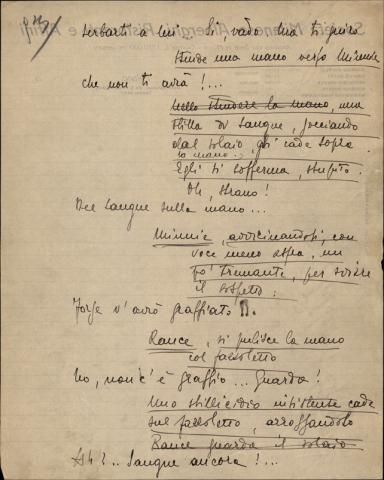 serbarti a lui... Sì, vado. Ma ti giuro
stende una mano verso Minnie
che non ti avrà!...
nello stendere la mano, una
stilla di sangue, gocciando
dal solaio, gli cade sopra
la mano.
Egli si sofferma, stupito.
Oh, strano!
Del sangue sulla mano...
Minnie, avvicinandosi, con
voce meno aspra, un
po' tremante, per sviare
il sospetto:
Forse v'avrò graffiato
Rance, si pulisce la mano
col fazzoletto
No, non c'è graffio... Guarda!
Uno stillicidio insistente cade
sul fazzoletto, arrossandolo
Rance guarda il solaio
Ah!.. Sangue ancora!...